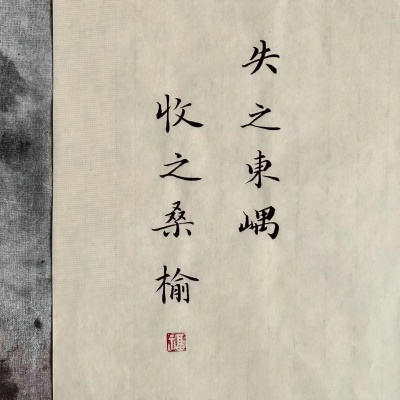 失之東嵎
收之桑榆